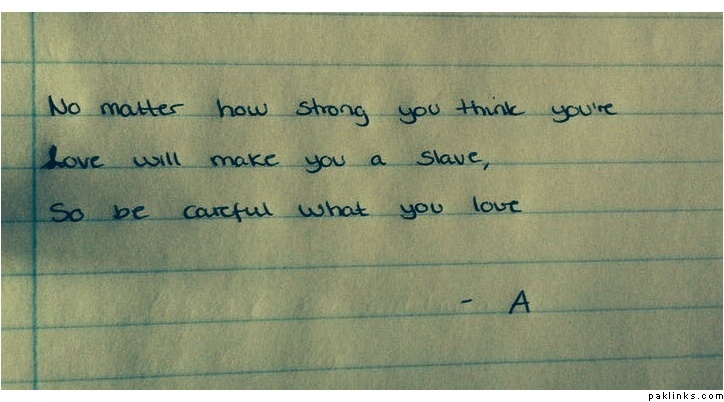 No matter how strong you think you're
Love will make you a slave,
So be careful what you love
- A
paklinks.com